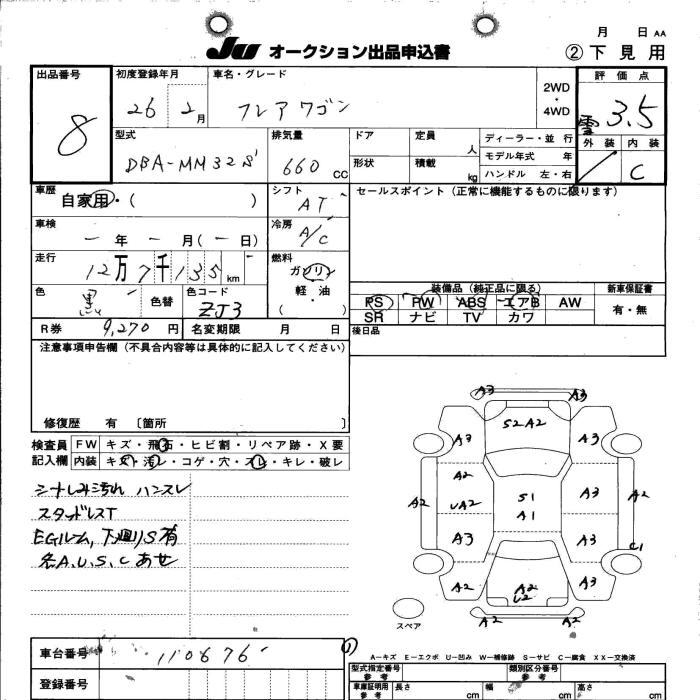 月 日 AA
JU オークション出品申込書 ②下見用
出品番号 初度登録年月 車名・グレード 評価点
8 26 2月 フレアワゴン 2WD・4WD 3.5
型式 排気量 ドア 定員 人 ディーラー・並行 外装 内装
DBA-MM32S 660 CC 形状 積載 kg モデル年式 年 C
ハンドル 左・右
車歴 シフト セールスポイント (正常に機能するものに限ります)
自家用・( ) AT
車検 冷房
ー 年 ー 月(ー 日) A/C
走行 燃料
12万7千135km ガソリン
軽・油
( )
色 黒 色替 色コード ZJ3
装備品(純正品に限る) 新車保証書
PS PW ABS エアB AW 有・無
SR ナビ TV カワ
R券 9,270円 名変期限 月 日 後日品
注意事項申告欄(不具合内容等は具体的に記入してください)
修復歴 有 〔箇所 〕
検査員 FW キズ・飛石・ヒビ割・リペア跡・X要
記入欄 内装 キズ・汚レ・コゲ・穴・スレ・キレ・破レ
シートしみ汚れ ハンスレ
スタッドレスT
EGルーム,下廻りS有
各A,U,S,Cあせ
A3 A3
S2 A2
A3 A3
A2
A2 UA2 S1 A3 A2
A1
A3 A3 C1
A2 A2 U2 A3
A2 A2
スペア
車台番号 110676
登録番号
A−キズ E−エクボ U−凹み W−補修跡 S−サビ C−腐食 XX−交換済
型式指定番号 類別区分番号
参考 参考
車庫証明用 長さ 幅 高さ
参考 cm cm cm